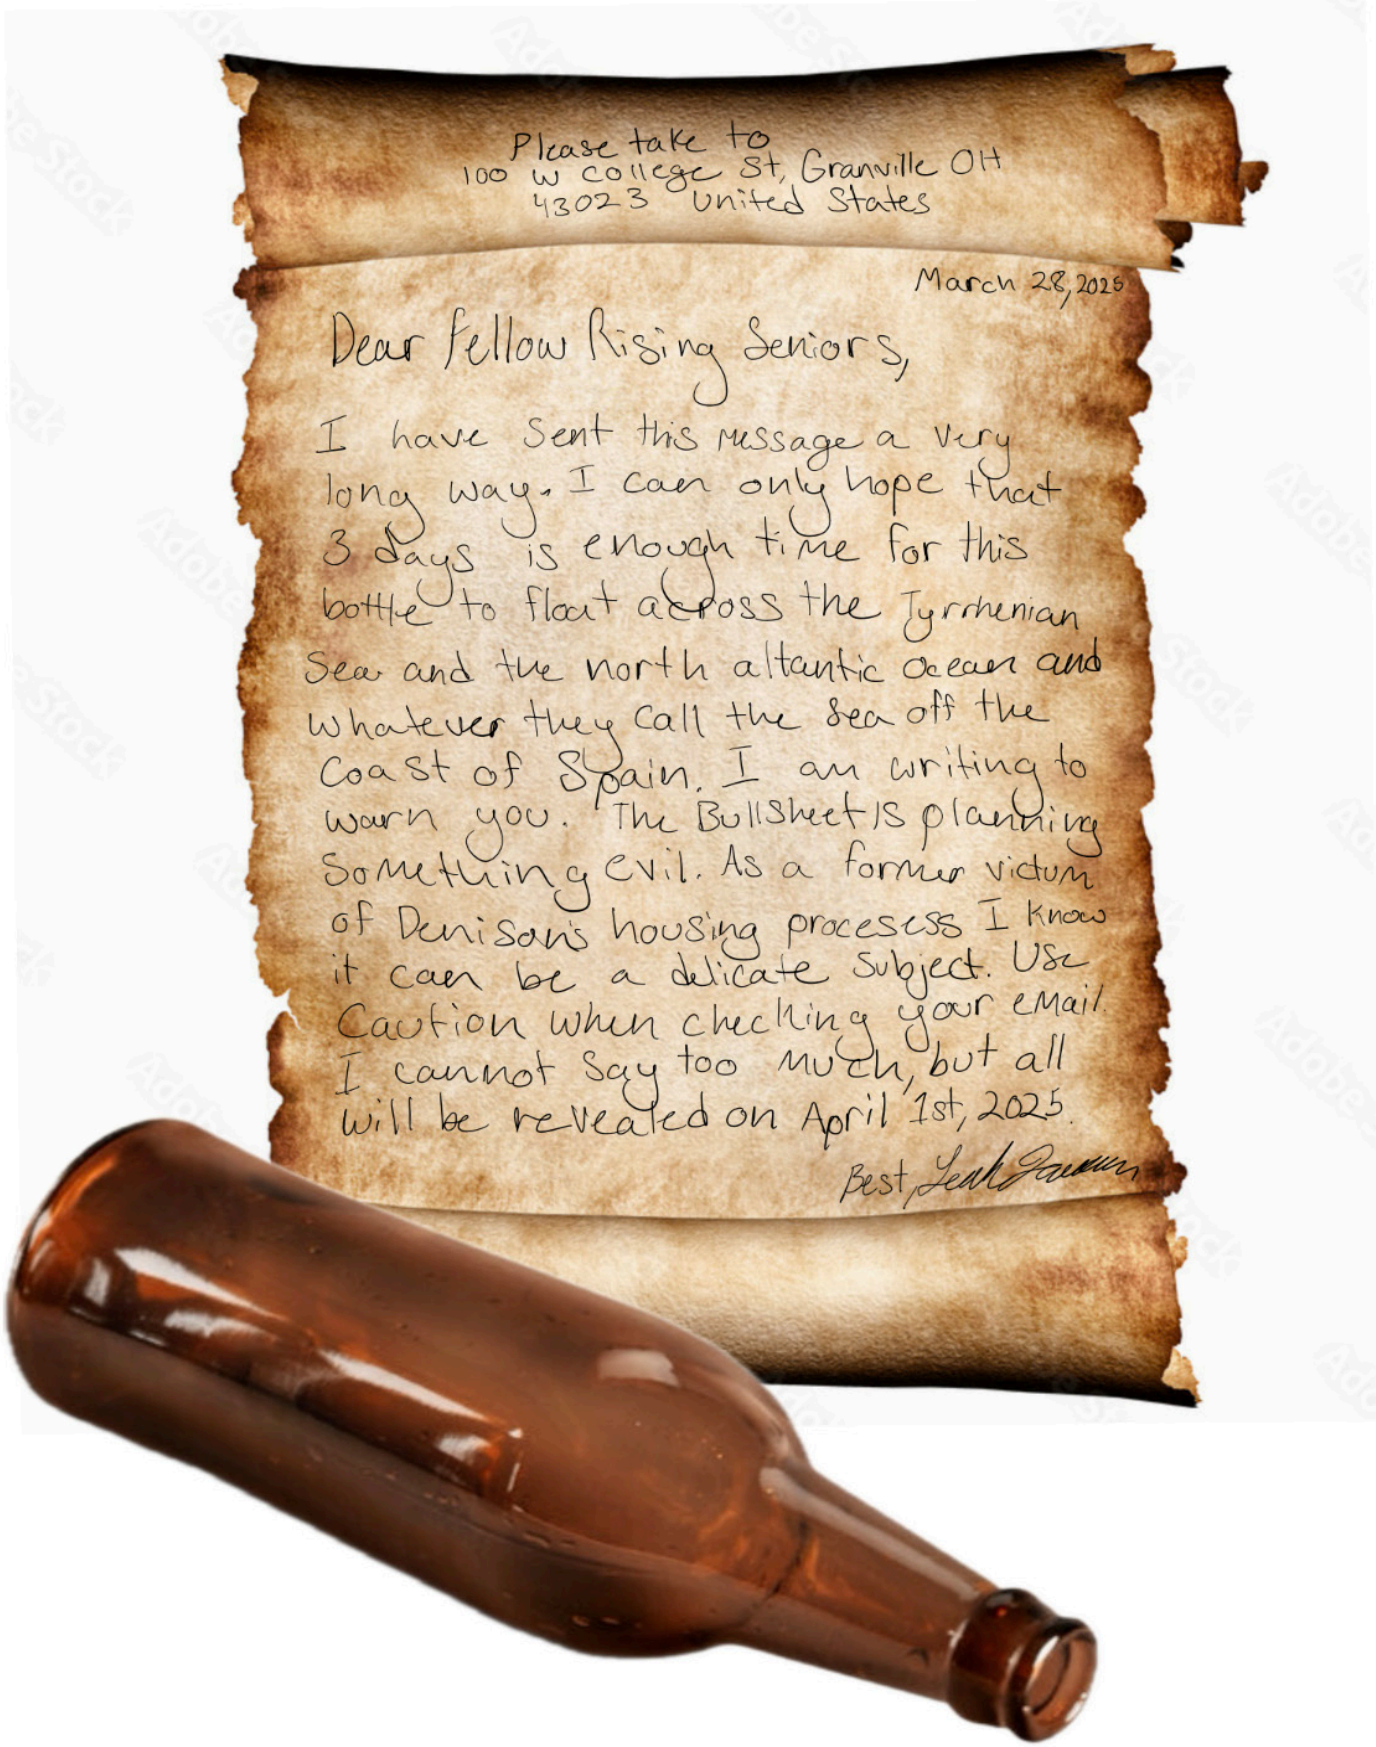 Please take to
100 W College St, Granville OH
43023 United States
March 28, 2025
Dear Fellow Rising Seniors,
I have sent this message a very
long way. I can only hope that
3 days is enough time for this
bottle to float across the Tyrrhenian
Sea and the north altantic ocean and
whatever they call the sea off the
coast of Spain. I am writing to
warn you. The Bullsheet is planning
something evil. As a former victum
of Denison's housing procesess I know
it can be a delicate subject. Use
Caution when checking your email.
I cannot say too much, but all
will be revealed on April 1st, 2025.
Best, Leah
Adobe Stock